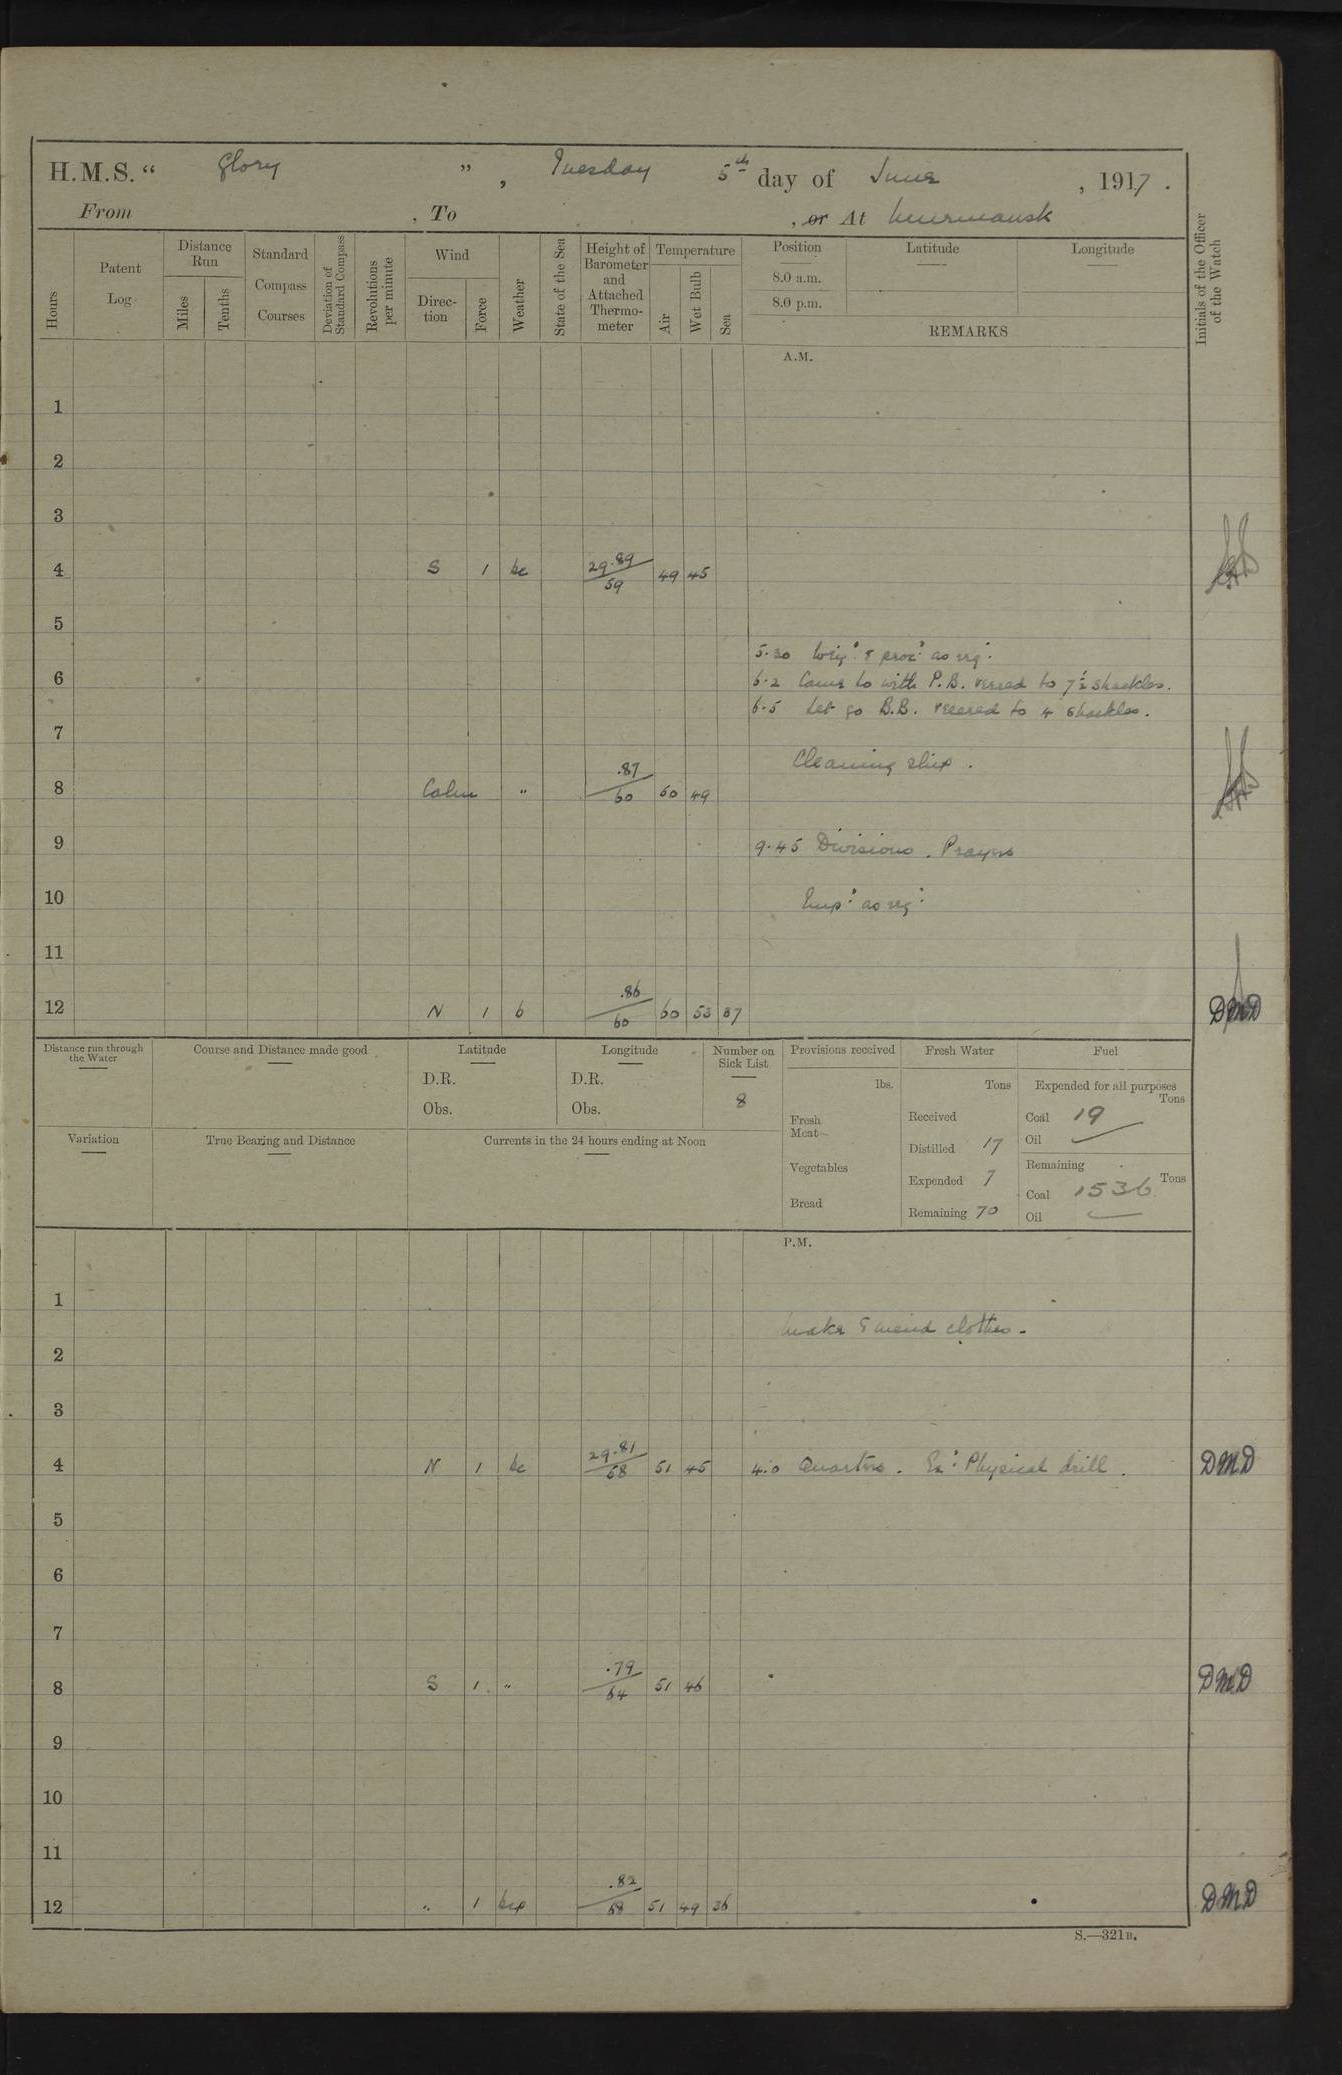 H.M.S. “ Glory ”, Tuesday 5th day of June, 1917.
From , To , or At Murmansk
Hours
Patent Log
Distance Run
Miles
Tenths
Standard Compass Courses
Deviation of Standard Compass
Revolutions per minute
Wind
Direc-tion
Force
Weather
State of the Sea
Height of Barometer and Attached Thermo-meter
Temperature
Air
Wet Bulb
Sea
Position
8.0 a.m.
8.0 p.m.
Latitude
Longitude
REMARKS
Initials of the Officer of the Watch
A.M.
1
2
3
4 S 1 bc 29.89 59 49 45
5
5.30 Weig. & proc. as req.
6
6.2 Came to with P.B. veered to 7½ shackles.
6.5 Let go B.B. veered to 4 shackles.
7
Cleaning ship.
8 Calm " .87 60 60 49
9 9.45 Divisions. Prayers
10 Emp. as req.
11
12 N 1 b .86 60 60 53 37 DMD
Distance run through the Water
Course and Distance made good
Latitude
D.R.
Obs.
Longitude
D.R.
Obs.
Number on Sick List
8
Provisions received
lbs.
Fresh Meat
Vegetables
Bread
Fresh Water
Tons
Received
Distilled 17
Expended 7
Remaining 70
Fuel
Expended for all purposes
Tons
Coal 19
Oil —
Remaining
Tons
Coal 1536
Oil —
Variation
True Bearing and Distance
Currents in the 24 hours ending at Noon
P.M.
1
Make & mend clothes.
2
3
4 N 1 bc 29.81 58 51 45 4.0 Quarters. Ex. Physical drill. DMD
5
6
7
8 S 1 " .79 64 51 46 DMD
9
10
11
12 " 1 bcp .82 68 51 49 36 DMD
S.—321B.